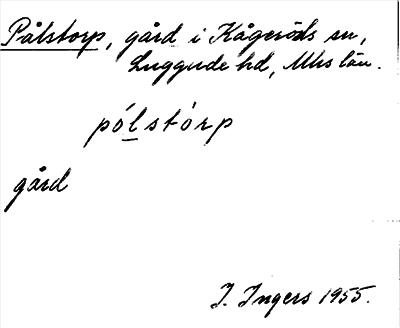 Pålstorp, gård i Kågeröds sn,
Luggude hd, Mhs län.
pó̱lstò̱rp
gård
I. Ingers 1955.